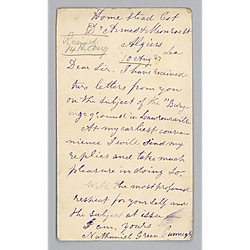 Home stead Cot
Cr Armed & Monroe St
Algiers
La
Received
14th Aug
10 Aug 87
Dear Sir. I have received
two letters from you
on the subject of the "Bury-
ing ground in Lawrenceville
At my earliest conve-
nience I will send my
replies and take much
pleasure in doing so.
With the most profound
respect for yourself and
the subject at issue
I am, yours
Nathaniel Green